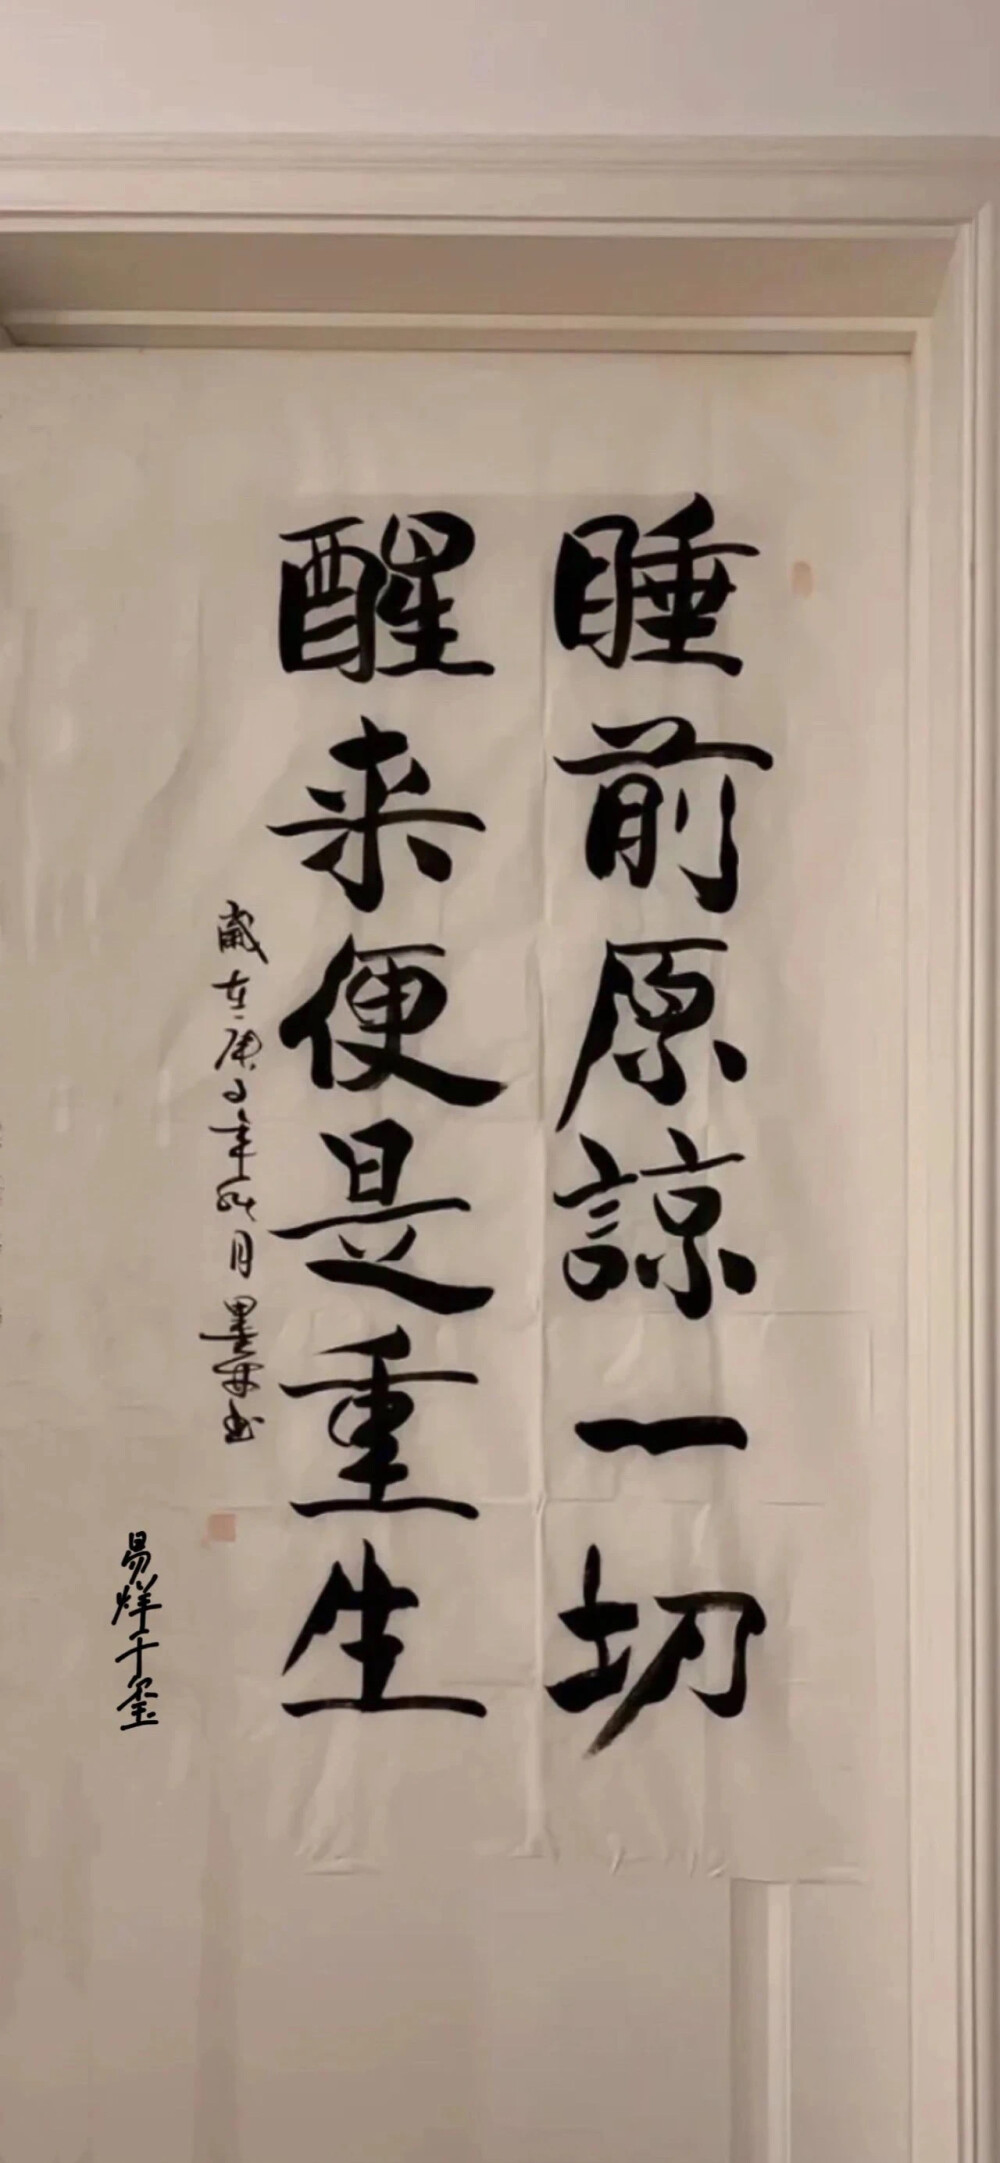 睡前原諒一切
醒来便是重生
歲在庚子年
月墨
书
易烊千玺